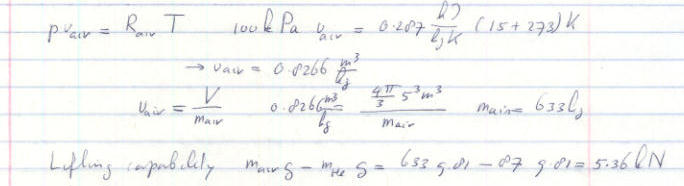 p v_air = R_air T    100 kPa v_air = 0.287 kJ/kg K (15+273) K
→ v_air = 0.8266 m³/kg
v_air = V/m_air    0.8266 m³/kg = (4π/3 5³ m³)/m_air    m_air = 633 kg
Lifting capability    m_air g − m_He g = 633 9.81 − 87 9.81 = 5.36 kN